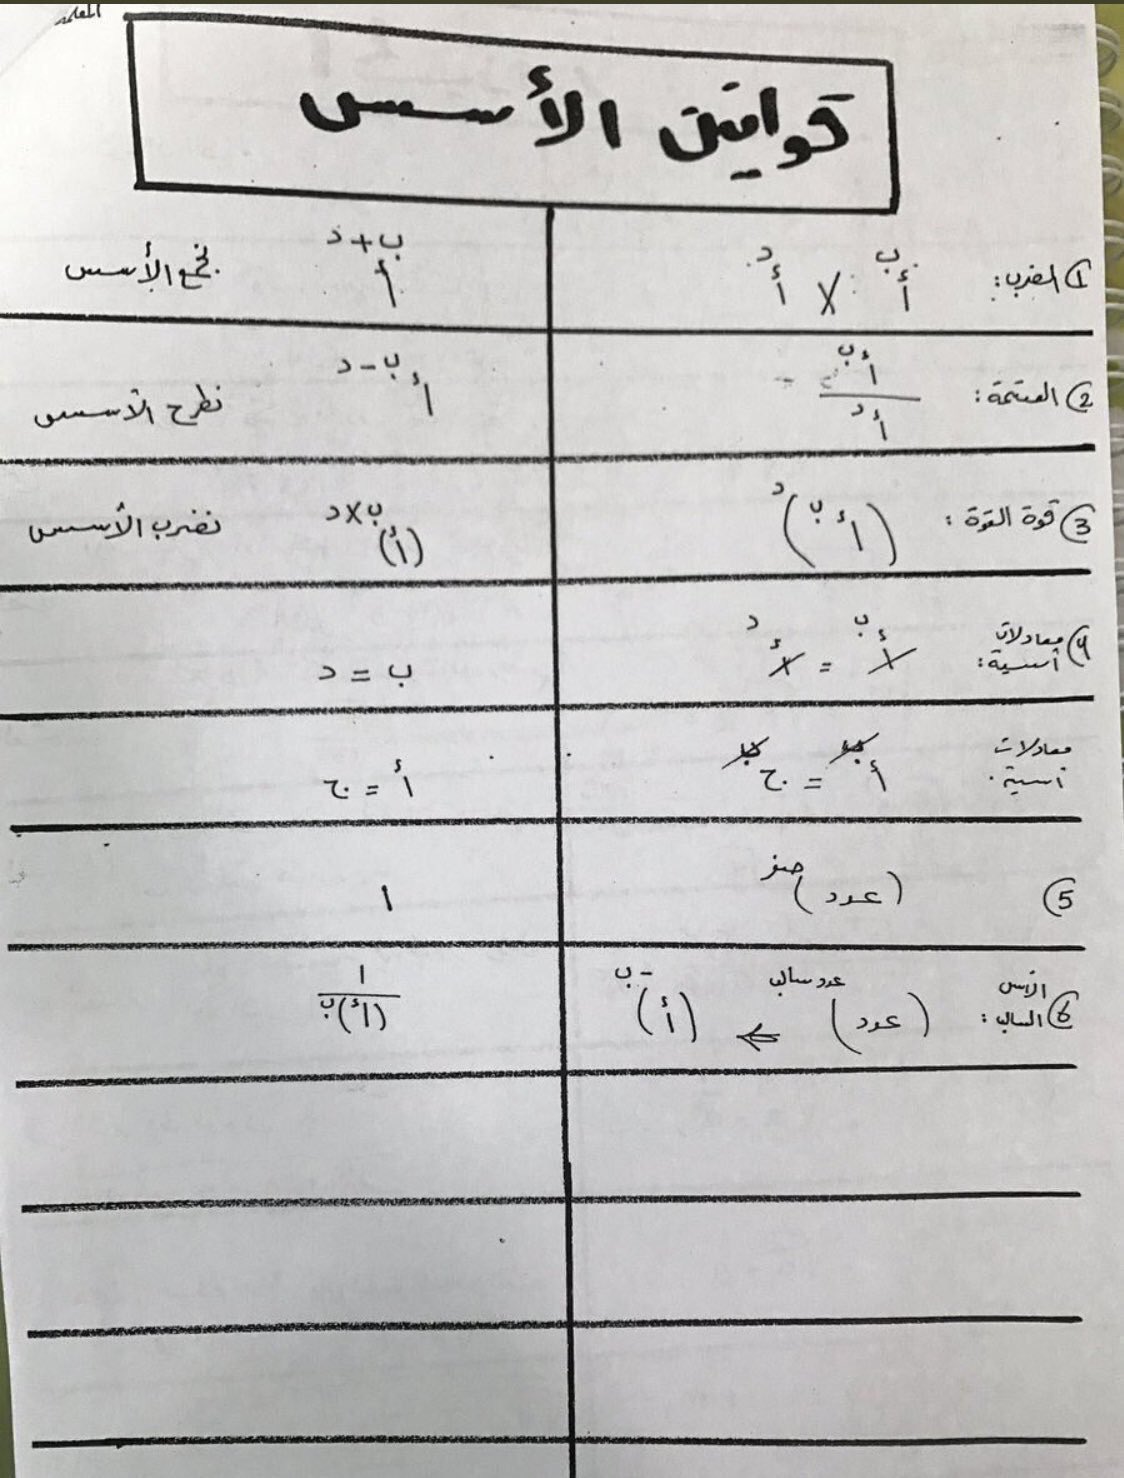 المعلمة
قوانين الأسس
① الضرب: أ^ب × أ^د أ^(ب+د) نجمع الأسس
② القسمة: أ^ب / أ^د أ^(ب-د) نطرح الأسس
③ قوة القوة: (أ^ب)^د (أ)^(ب×د) نضرب الأسس
④ معادلات أسية: أ^ب = أ^د ب = د
معادلات أسية. أ^ب = ج^ب أ = ج
⑤ (عدد)^صفر ١
⑥ الأسس السالب: (عدد)^عدد سالب ⇐ (أ)^-ب ١ / (أ)^ب